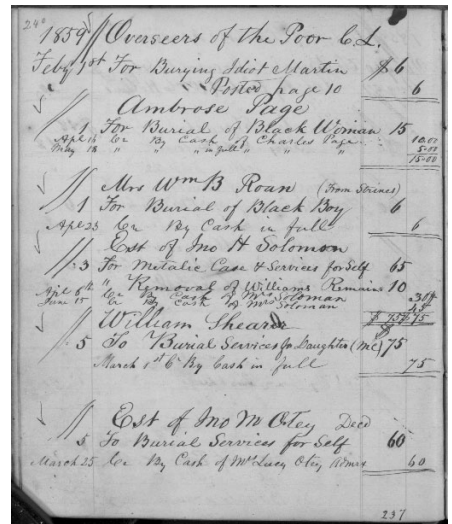 240
1859 Overseers of the Poor C.L.
Feby 1st For Burying Idiot Martin $6
Posted page 10 6
Ambrose Page
" 1 For Burial of Black Woman 15
Apl 16 Cr By Cash of Charles Page 10.00
May 18 " " " in full " " " 5.00
15.00
Mrs Wm B Roan (From Strines)
" 1 For Burial of Black Boy 6
Apr 23 Cr By Cash in full 6
Est of Jno H Solomon
" 3 For Metalic Case & Services for Self 65
" Removal of Williams Remains 10
Apl 6th Cr By Cash of Mrs Soloman 30
June 15 Cr By Cash of Mrs Soloman 45
$ 75 75
William Sheard
" 5 To Burial Services for Daughter (MC) 75
March 1st Cr By Cash in full 75
Est of Jno M Otey Decd
" 5 To Burial Services for Self 60
March 25 Cr By Cash of Mrs Lucy Otey Admrx 60
237